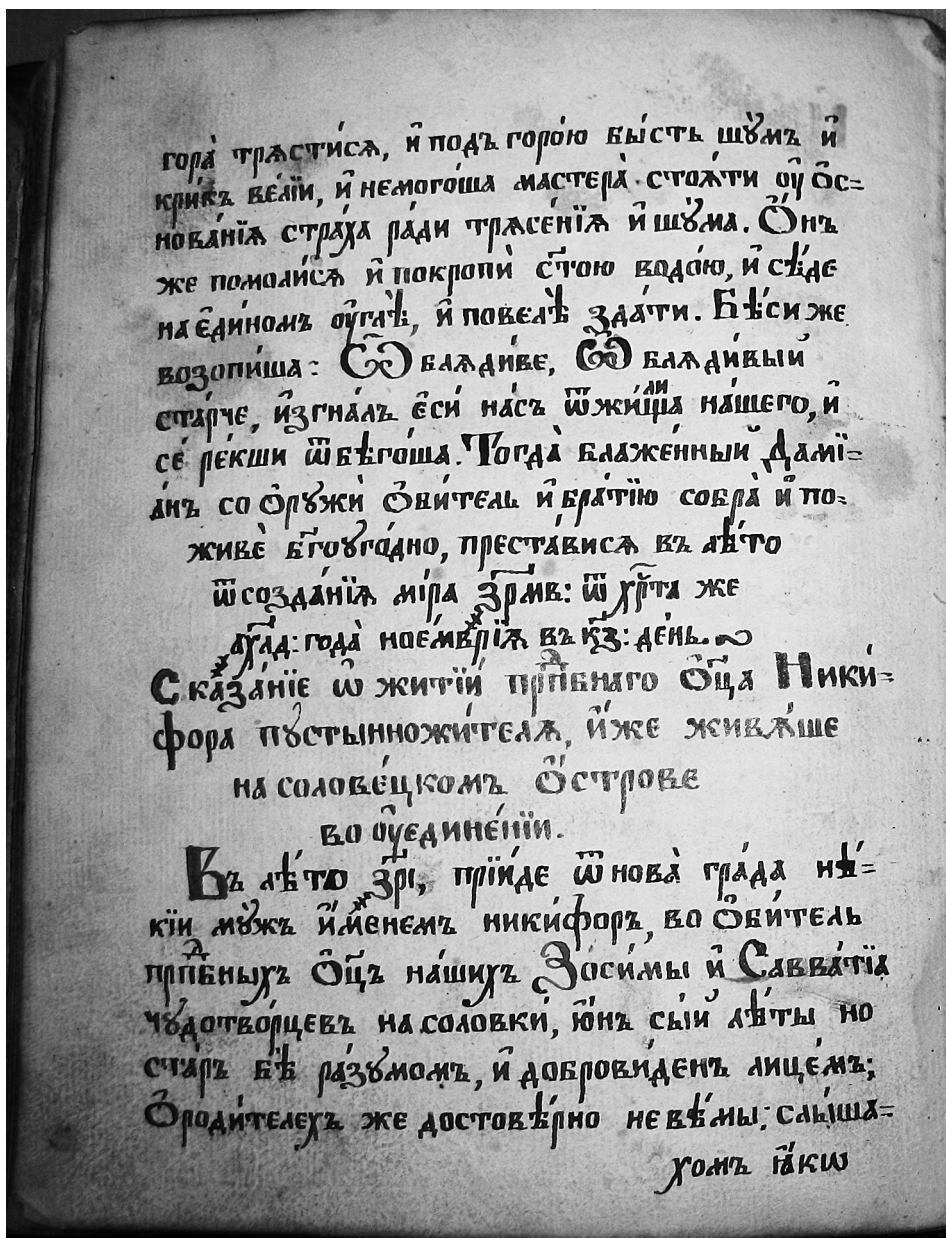 гора̀ трѧсти́сѧ, и҆ подъ горо́ю бы́сть шꙋ́мъ и҆
кри́къ ве́лїи, и҆ немого́ша мастера̀ стоѧ́ти оу҆ ѻ҆с=
нова́нїѧ стра́ха ра́ди трѧсе́нїѧ и҆ шꙋ́ма. Ѻ҆́нъ
же помоли́сѧ и҆ покропѝ ст҃ою водо́ю, и҆ сѣ́де
на є҆ди́номъ оу҆глѣ̀, и҆ повелѣ̀ зда́ти. Бѣ́си же
возопи́ша: Ѽ блѧди́ве, Ѽ блѧди́выи̌
ста́рче, и҆згна́лъ є҆сѝ на́съ ѿ жили́ща на́шего, и҆
се́ ре́кши ѿбѣго́ша. Тогда̀ блаже́нныи̌ Дамї=
а́нъ со ѻ҆рꙋжѝ ѻ҆би́тель и҆ бра́тїю собра̀ и҆ по=
живѐ бг҃оуго́дно, преста́висѧ въ лѣ́то
ѿ созда́нїѧ мі́ра ҂зр҃мв: ѿ хр҃та же
҂аху҃лд: года̀ ноемврі́ѧ въ к҃з: де́нь.
Сказа́нїе ѡ҆ житїѝ прпⷣбнаго ѻ҆ц҃а Ники́=
фора пꙋстынножи́телѧ, и҆́же живѧ́ше
на солове́цкомъ ѻ҆́строве
во оу҆едине́нїи.
Въ лѣ́то ҂зр҃і, прїи́де ѿ нова̀ гра́да нѣ́=
кїи мꙋ́жъ и҆́менемъ ники́форъ, во ѻ҆би́тель
прпⷣбныхъ ѻ҆ц҃ъ на́шихъ Зоси́мы и҆ Савва́тїа
чꙋдотво́рцевъ на соловки́, ю҆́нъ сы́и̌ лѣ́ты но
ста́ръ бѣ̀ ра́зꙋмомъ, и҆ доброви́денъ лице́мъ;
Ѻ҆ роди́телехъ же достовѣ́рно не вѣ́мы; слы́ша=
хомъ ꙗ҆́кѡ